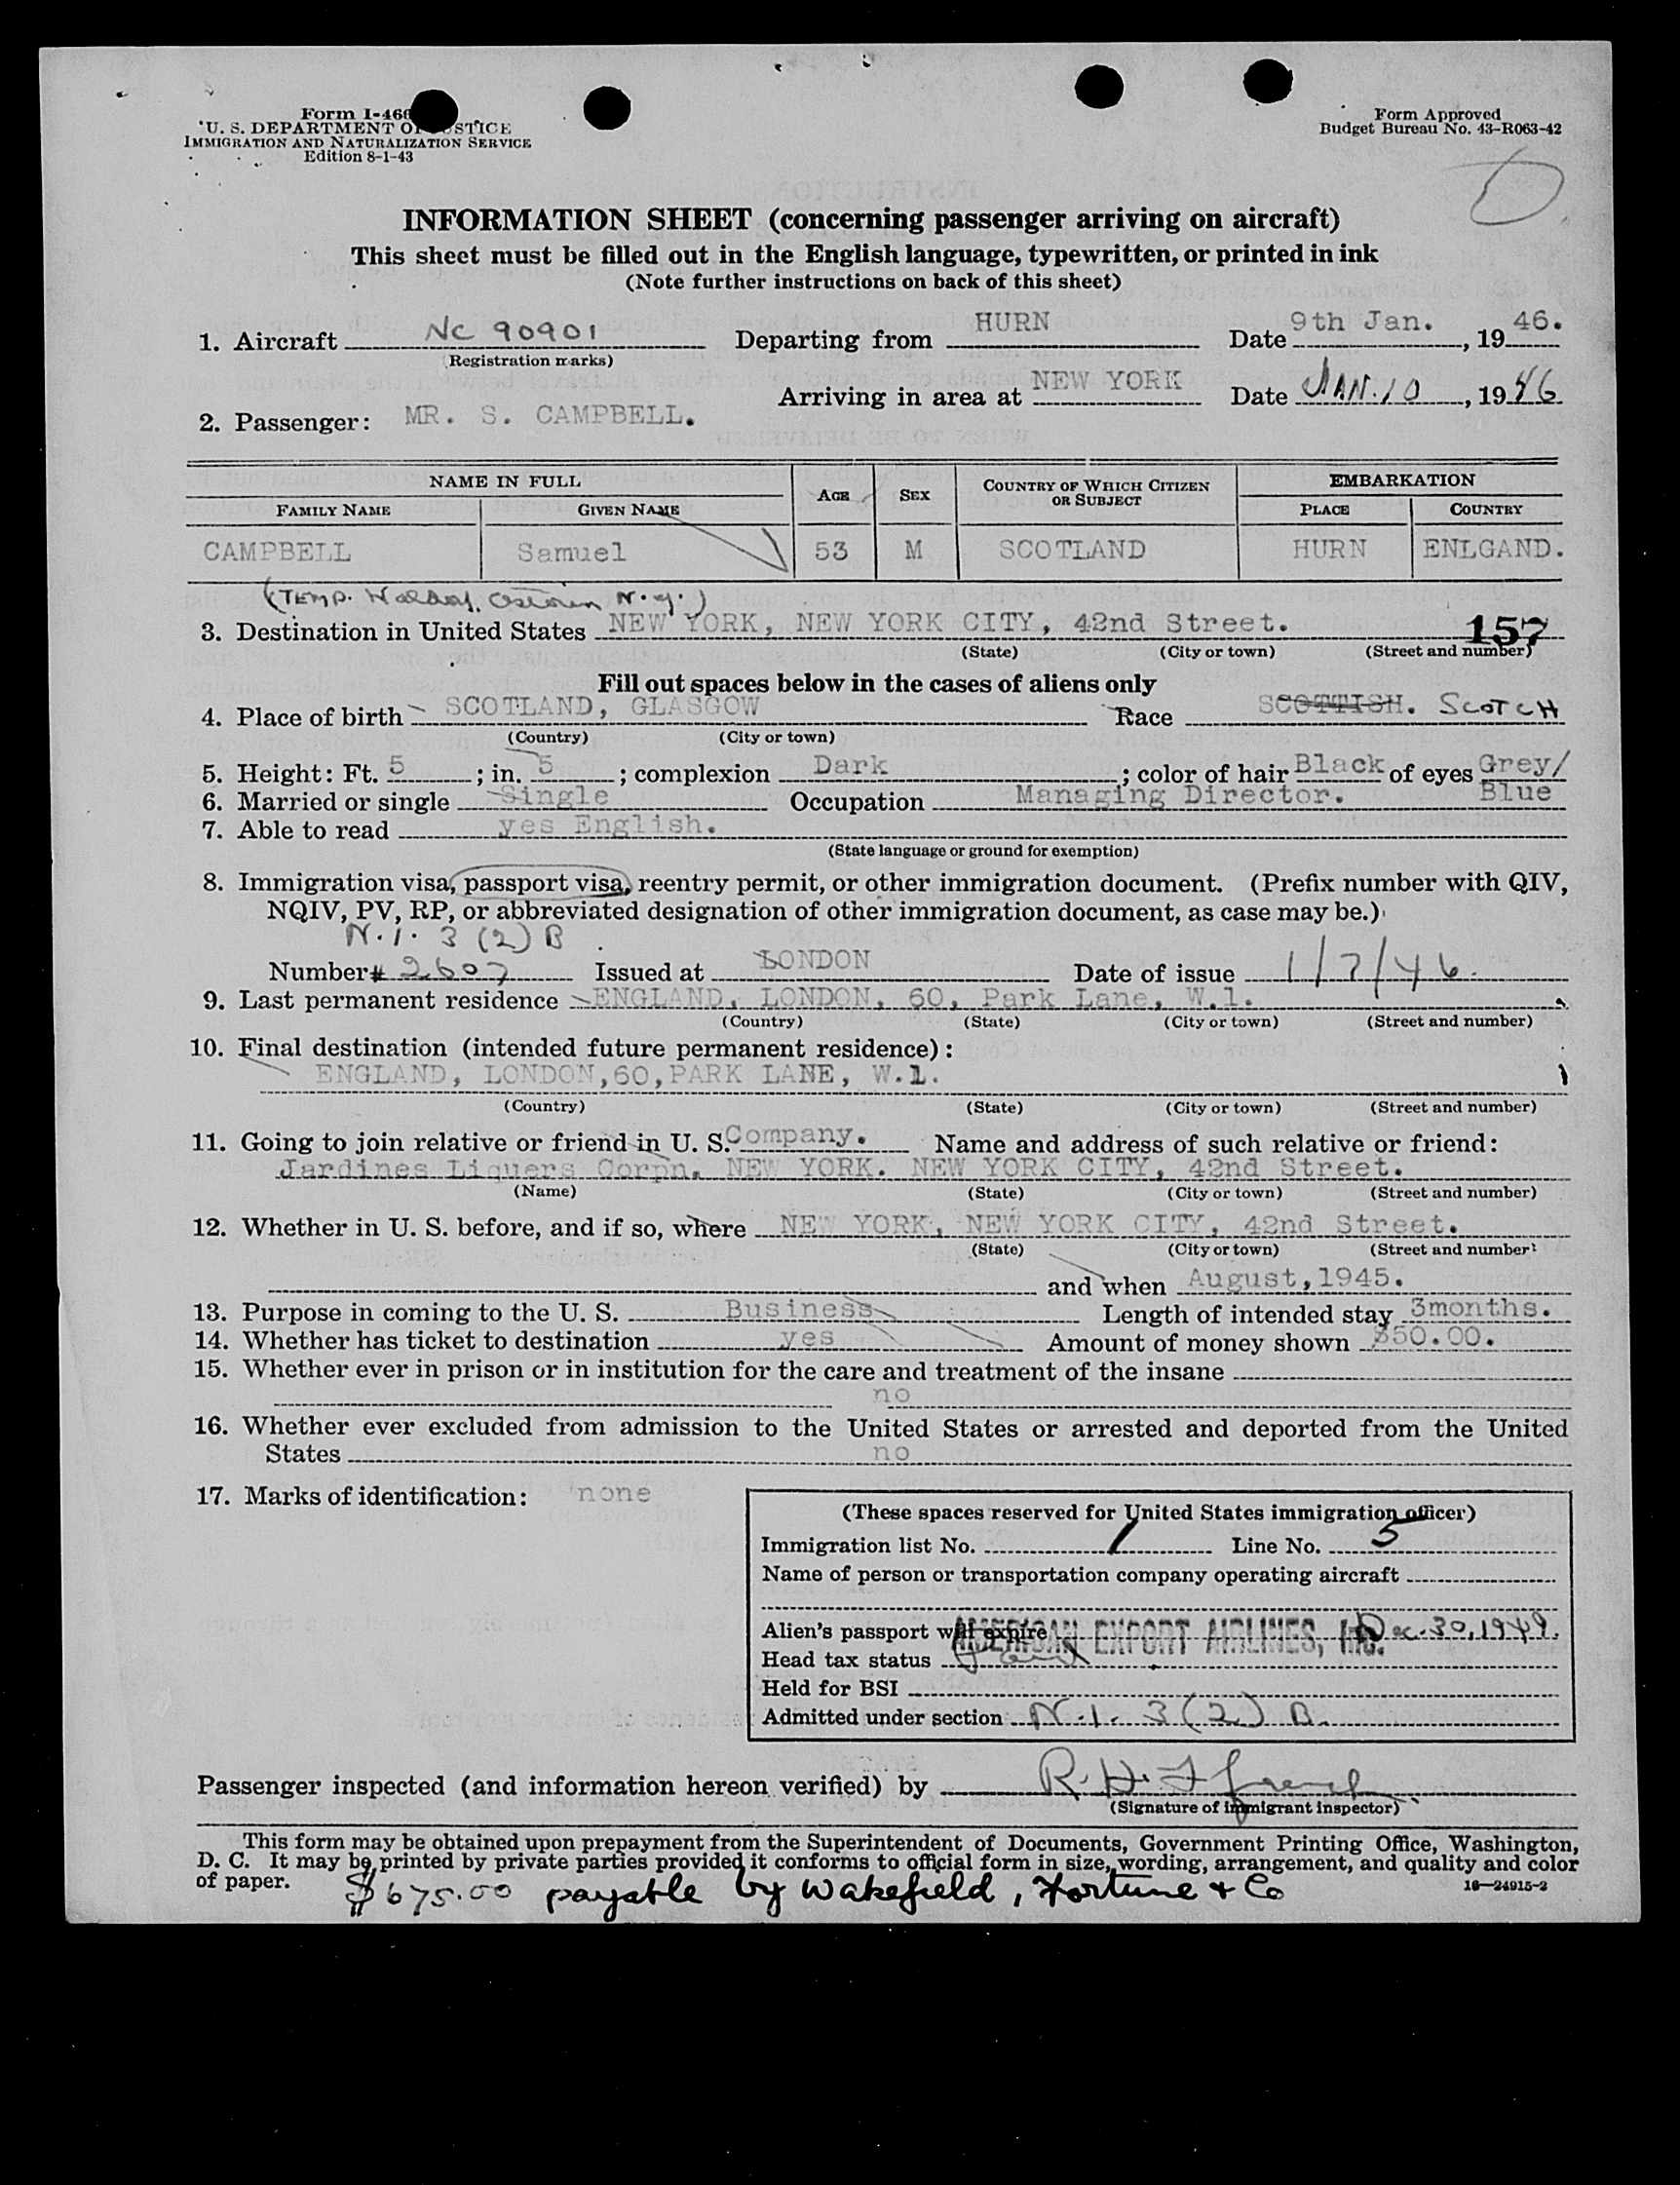 Form I-466
U. S. DEPARTMENT OF JUSTICE
IMMIGRATION AND NATURALIZATION SERVICE
Edition 8-1-43
Form Approved
Budget Bureau No. 43-R063-42
D
INFORMATION SHEET (concerning passenger arriving on aircraft)
This sheet must be filled out in the English language, typewritten, or printed in ink
(Note further instructions on back of this sheet)
1. Aircraft NC 90901 Departing from HURN Date 9th Jan. , 19 46.
(Registration marks)
Arriving in area at NEW YORK Date JAN. 10 , 19 46
2. Passenger: MR. S. CAMPBELL.
NAME IN FULL AGE SEX COUNTRY OF WHICH CITIZEN OR SUBJECT EMBARKATION
FAMILY NAME GIVEN NAME PLACE COUNTRY
CAMPBELL Samuel 53 M SCOTLAND HURN ENLGAND.
(TEMP. Waldorf Astoria N.Y.)
3. Destination in United States NEW YORK, NEW YORK CITY, 42nd Street. 157
(State) (City or town) (Street and number)
Fill out spaces below in the cases of aliens only
4. Place of birth SCOTLAND, GLASGOW Race SCOTTISH. SCOTCH
(Country) (City or town)
5. Height: Ft. 5 ; in. 5 ; complexion Dark ; color of hair Black of eyes Grey/
6. Married or single Single Occupation Managing Director. Blue
7. Able to read yes English.
(State language or ground for exemption)
8. Immigration visa, passport visa, reentry permit, or other immigration document. (Prefix number with QIV,
NQIV, PV, RP, or abbreviated designation of other immigration document, as case may be.)
N.I. 3 (2) B
Number # 2607 Issued at LONDON Date of issue 1/7/46.
9. Last permanent residence ENGLAND, LONDON, 60, Park Lane, W.1.
(Country) (State) (City or town) (Street and number)
10. Final destination (intended future permanent residence):
ENGLAND, LONDON,60,PARK LANE, W.1.
(Country) (State) (City or town) (Street and number)
11. Going to join relative or friend in U. S. Company. Name and address of such relative or friend:
Jardines Liquers Corpn. NEW YORK. NEW YORK CITY, 42nd Street.
(Name) (State) (City or town) (Street and number)
12. Whether in U. S. before, and if so, where NEW YORK, NEW YORK CITY, 42nd Street.
(State) (City or town) (Street and number)
and when August,1945.
13. Purpose in coming to the U. S. Business Length of intended stay 3months.
14. Whether has ticket to destination yes Amount of money shown $50.00.
15. Whether ever in prison or in institution for the care and treatment of the insane
no
16. Whether ever excluded from admission to the United States or arrested and deported from the United
States no
17. Marks of identification: none
(These spaces reserved for United States immigration officer)
Immigration list No. 1 Line No. 5
Name of person or transportation company operating aircraft
AMERICAN EXPORT AIRLINES, INC.
Alien's passport will expire Dec. 30, 1949.
Head tax status
Held for BSI
Admitted under section N.I. 3 (2) B.
Passenger inspected (and information hereon verified) by
(Signature of immigrant inspector)
This form may be obtained upon prepayment from the Superintendent of Documents, Government Printing Office, Washington,
D. C. It may be printed by private parties provided it conforms to official form in size, wording, arrangement, and quality and color
of paper.
16—24915-2
$675.00 payable by Wakefield, Fortune & Co